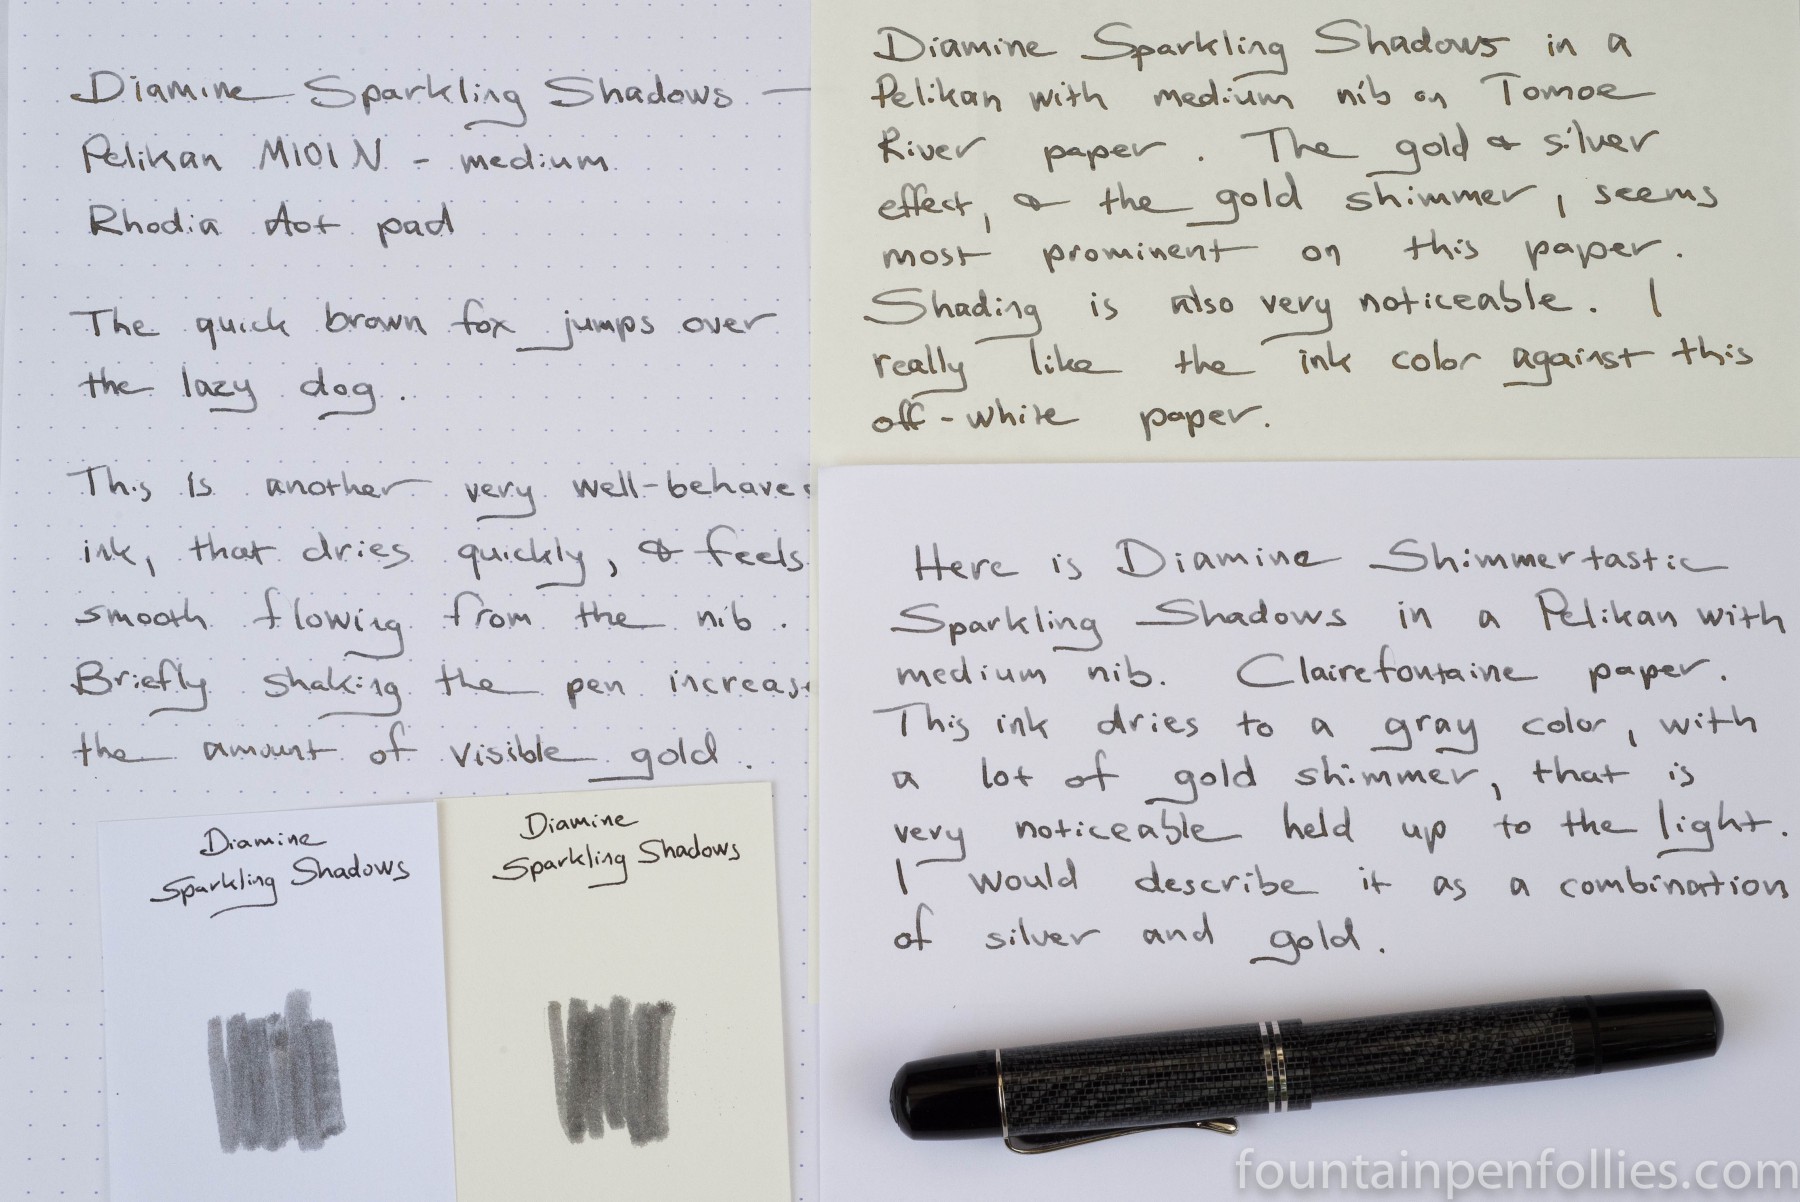 Diamine Sparkling Shadows —
Pelikan M101N - medium
Rhodia dot pad
The quick brown fox jumps over
the lazy dog.
This is another very well-behave
ink, that dries quickly, & feels
smooth flowing from the nib.
Briefly shaking the pen increas
the amount of visible gold.
Diamine
Sparkling Shadows
Diamine
Sparkling Shadows
Diamine Sparkling Shadows in a
Pelikan with medium nib on Tomoe
River paper. The gold & silver
effect, & the gold shimmer, seems
most prominent on this paper.
Shading is also very noticeable. I
really like the ink color against this
off-white paper.
Here is Diamine Shimmertastic
Sparkling Shadows in a Pelikan with
medium nib. Clairefontaine paper.
This ink dries to a gray color, with
a lot of gold shimmer, that is
very noticeable held up to the light.
I would describe it as a combination
of silver and gold.
fountainpenfollies.com